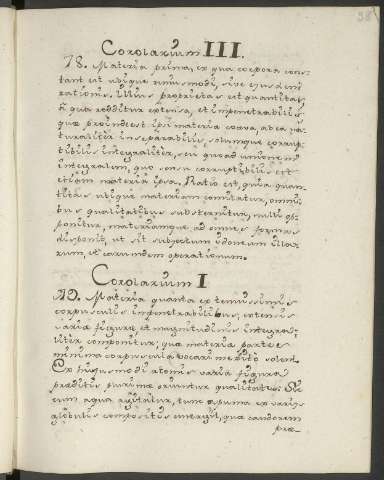 38
Corolarium III.
78. Materia prima, ex qua corpora cons-
tant est ubique unius modi, sive ejusdem
rationis, illius proprietas est quantitas,
a qua redditur extensa, et impenetrabilis
quæ proinde est ipsi materia coæva, ab ea na-
turaliter inseparabilis, solumque corrup-
tibilis integraliter, seu quoad unionem
integralem, quo sensu corruptibilis est
etiam materia ipsa. Ratio est, quia quan-
titas ubique materiam comitatur, omni-
bus qualitatibus substernitur, nulli op-
ponitur, materiamque ad omnes formas
disponit, ut sit subjectum idoneum illa-
rum, et earumdem operationum.
Corolarium I
79. Materia quanta ex tenuissimis
corpusculis impenetrabilibus, extensis
variæ figuræ et magnitudinis integra-
liter componitur, quæ materia partes
minima corpuscula vocari merito solent.
Ex hujusmodi atomis varia figura
præditis plurimæ oriuntur qualitates: Sic
cum aqua agitatur, tunc spuma ex variis
globulis compositus emergit, quæ candorem
præ-